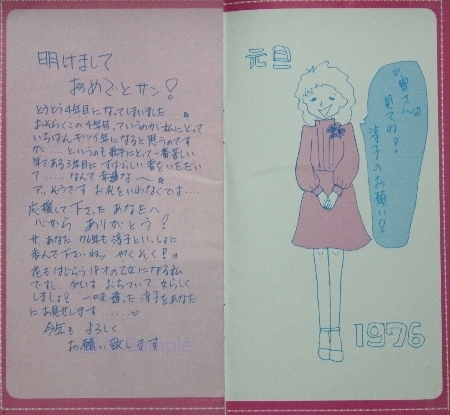 明けまして
おめでとサン!
とうとう4年目になってしまいました…
おそらくこの4年目、ていうのが私にとって
いちばんキツイ年になると思うのです
が……というのも歌手にとって一番苦しい
年である3年目にすばらしい賞をいただい
て……なんて幸運な〜
ア、そうです お礼をいわなくては……
応援して下さった あなたへ
心から ありがとう!
サ あなた 76年も 淳子といっしょに
歩んで下さいねッ やくそく!
花もはじらう18才の乙女になる私
ですし、今年は おちついて、女らしく
しましょ! 一味違った淳子をあなた
にお見せします……
今年も よろしく
お願い致します
元旦
『皆さんへ』
見てね?
淳子のお願い!
1976